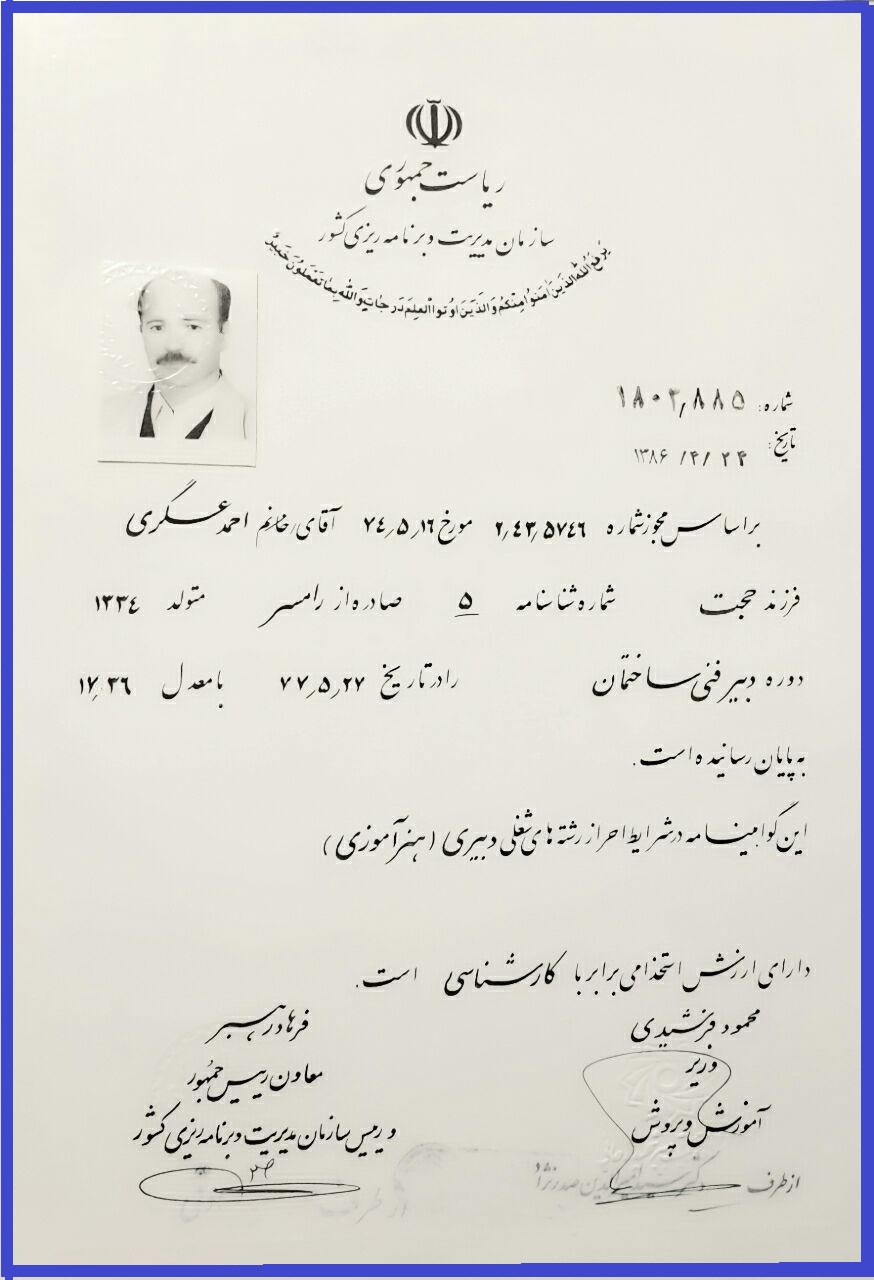 ریاست جمهوری
سازمان مدیریت و برنامه ریزی کشور
یَرفَعِ اللهُ الَّذینَ امَنوُا مِنکُم وَالَّذینَ اوُتوُا العِلمَ دَرَجاتٍ وَاللهُ بِما تَعمَلوُنَ خَبیرٌ
شماره: ۱۸۰۲٫۸۸۵
تاریخ: ۱۳۸۶/۴/۲۴
براساس مجوز شماره ۲٫۴۳٫۵۷۴۶ مورخ ۷۴٫۵٫۱۶ آقای/خانم احمد عسگری
فرزند حجت شماره شناسنامه ۵ صادره از رامسر متولد ۱۳۳۴
دوره دبیر فنی ساختمان را در تاریخ ۷۷٫۵٫۲۷ با معدل ۱۷٫۳۶
به پایان رسانیده است.
این گواهینامه در شرایط احراز رشته های شغلی دبیری (هنرآموزی)
دارای ارزش استخدامی برابر با کارشناسی است.
محمود فرشیدی
وزیر
آموزش و پرورش
از طرف
فرهاد رهبر
معاون رییس جمهور
و رییس سازمان مدیریت و برنامه ریزی کشور
از طرف